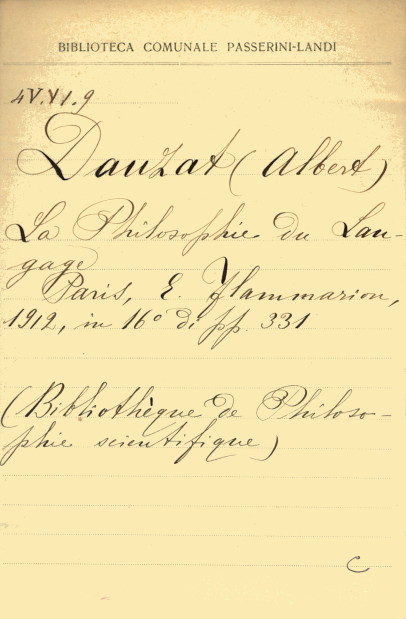 BIBLIOTECA COMUNALE PASSERINI-LANDI
4V.VI.9
Dauzat (Albert)
La Philosophie du Lan-
gage
Paris, E. Flammarion,
1912, in 16° di pp. 331
(Bibliothèque de Philoso-
phie scientifique)
C